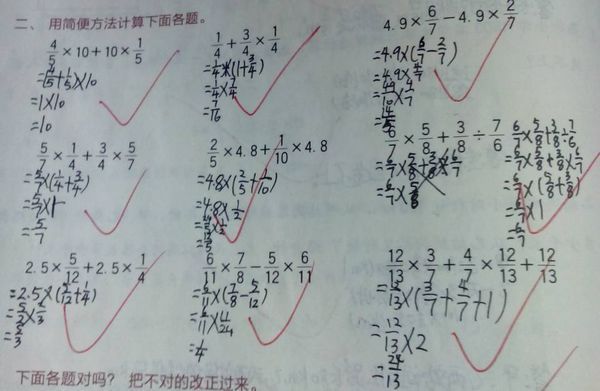 二、用简便方法计算下面各题。
4/5 ×10+10× 1/5
=(4/5+1/5)×10
=1×10
=10
1/4 + 3/4 × 1/4
=1/4×(1+3/4)
=1/4×7/4
=7/16
4.9× 6/7 −4.9× 2/7
=4.9×(6/7−2/7)
=4.9×4/7
=49/10×4/7
=14/5
5/7 × 1/4 + 3/4 × 5/7
=5/7×(1/4+3/4)
=5/7×1
=5/7
2/5 ×4.8+ 1/10 ×4.8
=4.8×(2/5+1/10)
=4.8×1/2
6/7 × 5/8 + 3/8 ÷ 7/6
=6/7×5/8+3/8×6/7
=6/7×5/8
6/7×5/8+3/8÷7/6
=6/7×5/8+3/8×6/7
=6/7×(5/8+3/8)
=6/7×1
=6/7
2.5× 5/12 +2.5× 1/4
=2.5×(5/12+1/4)
=5/2×2/3
=5/3
6/11 × 7/8 − 5/12 × 6/11
=6/11×(7/8−5/12)
=6/11×11/24
=1/4
12/13 × 3/7 + 4/7 × 12/13 + 12/13
=12/13×(3/7+4/7+1)
=12/13×2
=24/13
下面各题对吗？把不对的改正过来。